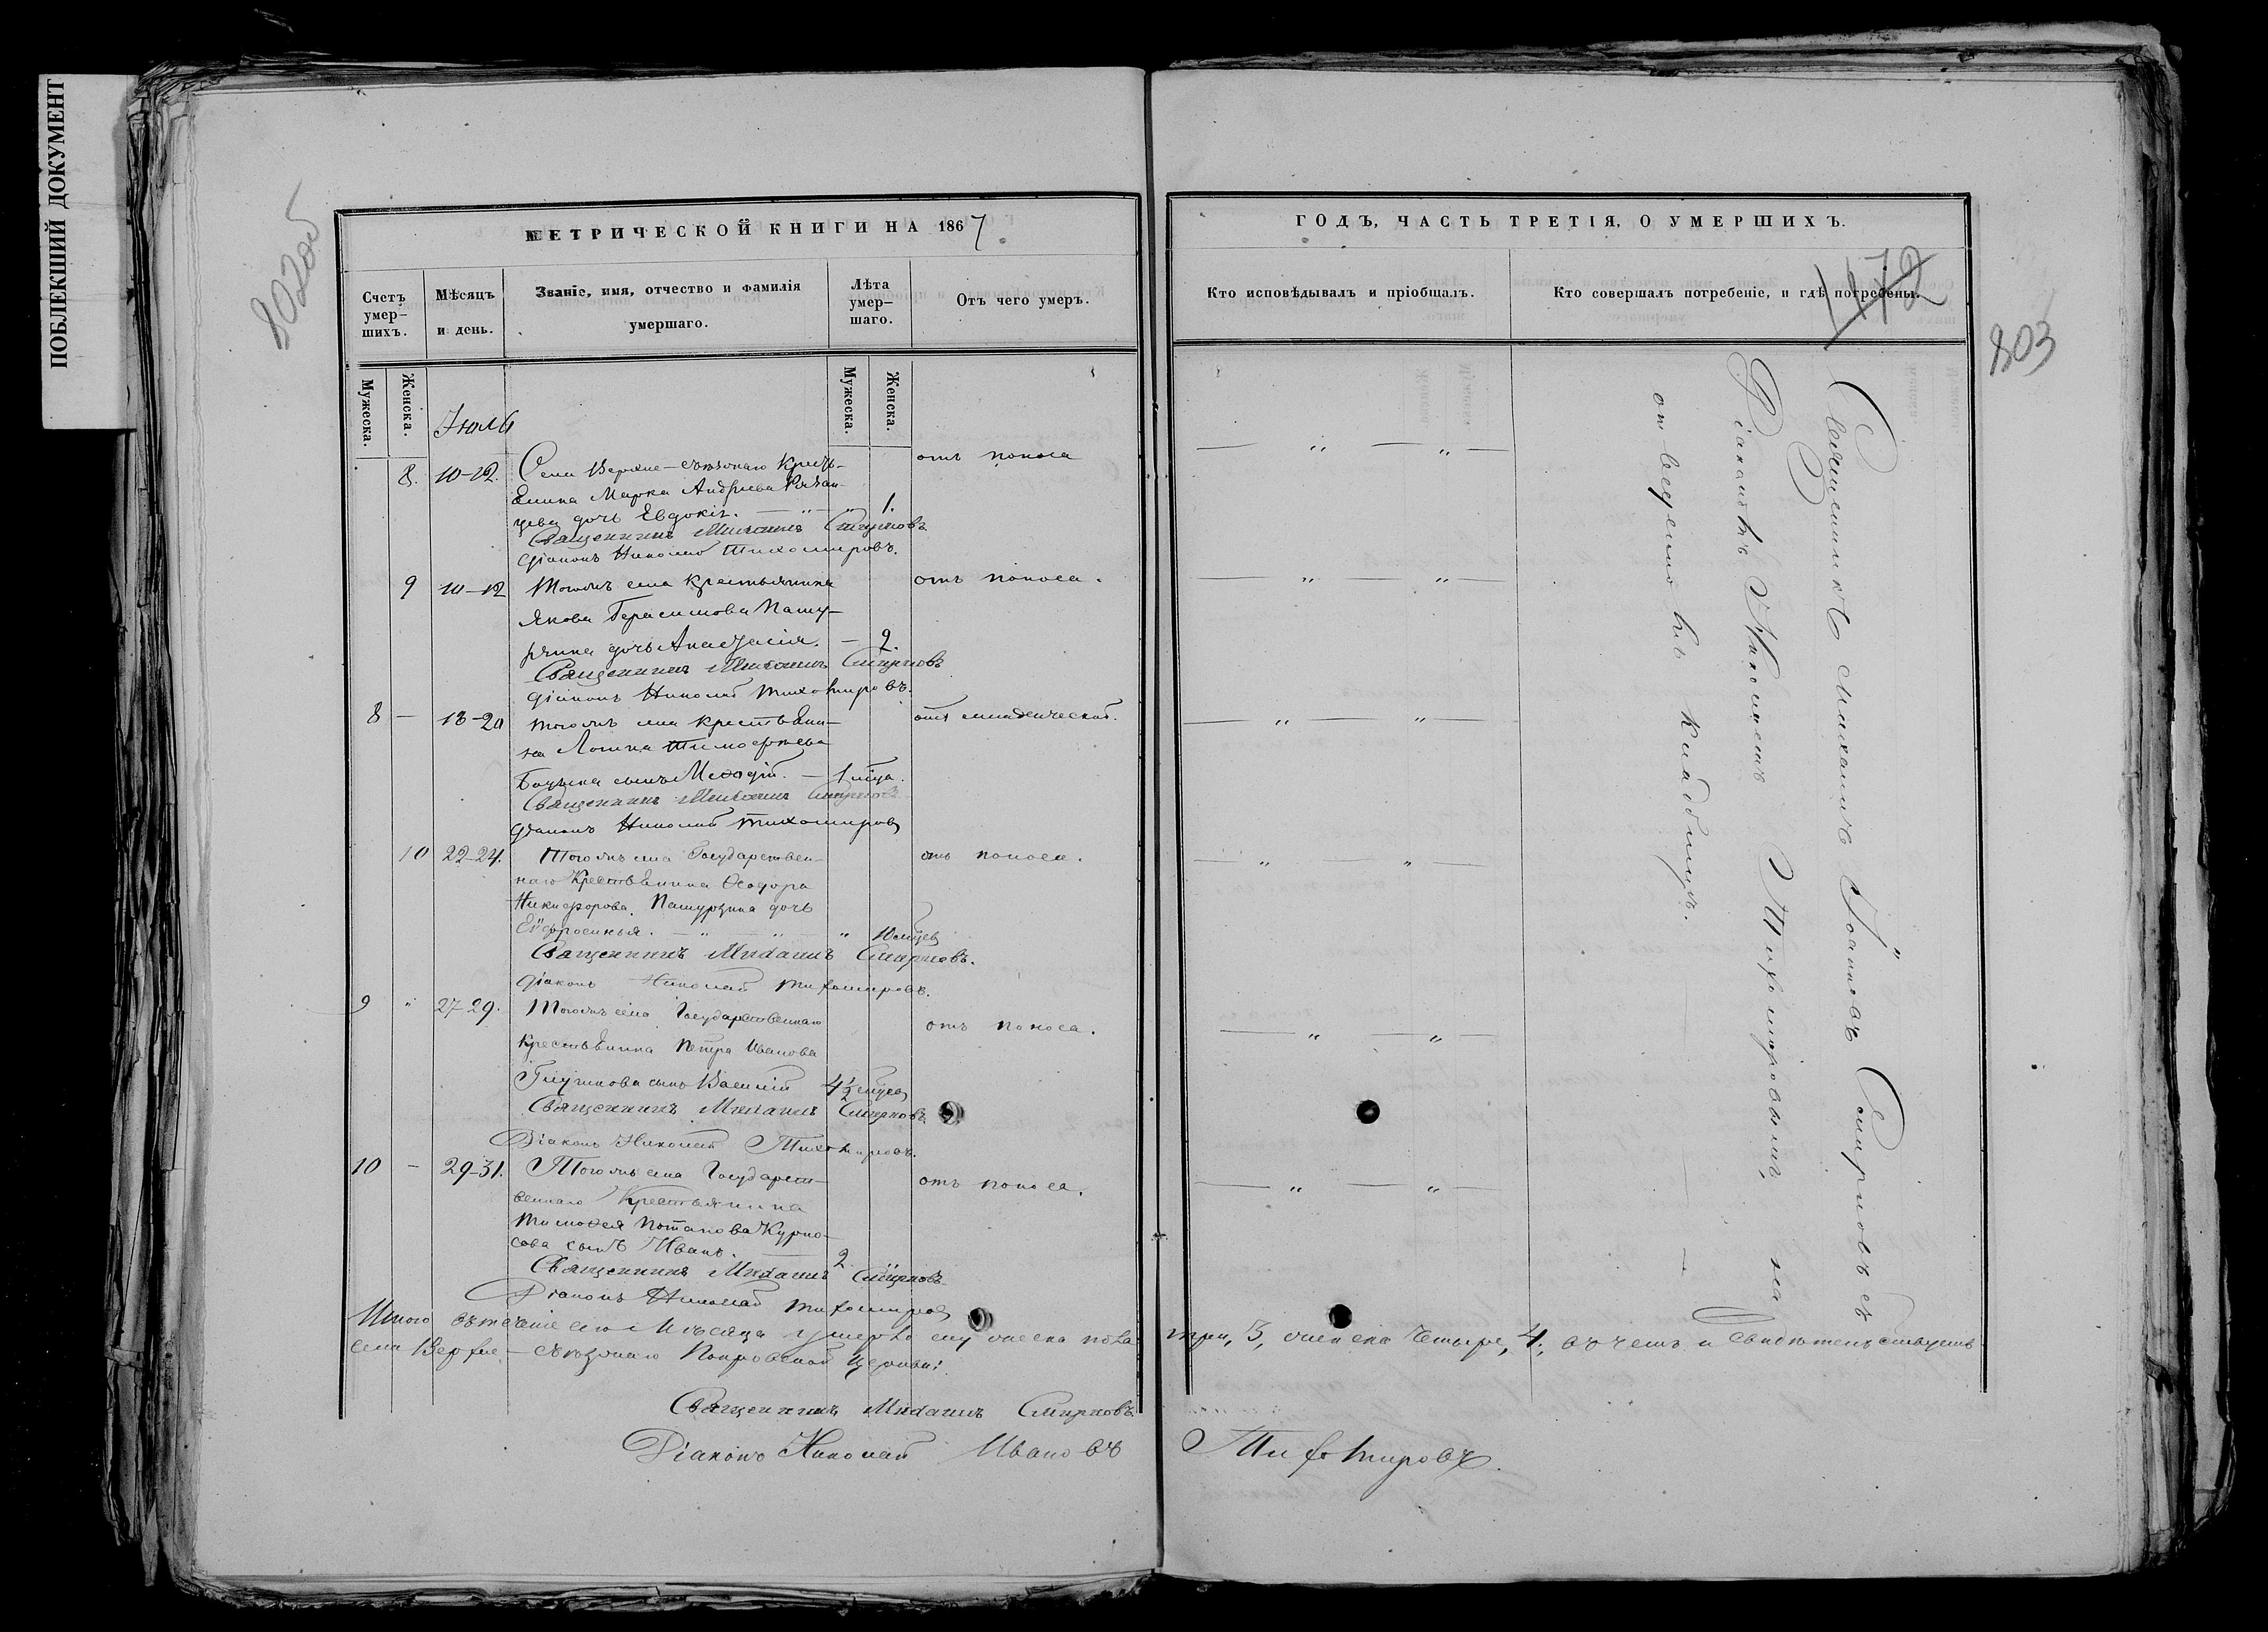 ПОБЛЕКШИЙ ДОКУМЕНТ
802об
МЕТРИЧЕСКОЙ КНИГИ НА 1867.
Счетъ умер-
шихъ.
Мѣсяцъ
и день.
Званіе, имя, отчество и фамилія
умершаго.
Лѣта
умер-
шаго.
Отъ чего умеръ.
Мужеска.
Женска.
Мужеска.
Женска.
Іюль
8. 10-12. Села Верхне-съѣзжаго Кресть-
янина Марка Андреева Казан-
цева дочь Евдокія. 1. отъ поноса
Священникъ Михаилъ Смирновъ
діаконъ Николай Тихомировъ.
9 10-12 Тогожъ села крестьянина
Якова Герасимова Пашу-
рчина дочь Анастасія. — 2. отъ поноса.
Священникъ Михаилъ Смирновъ
діаконъ Николай Тихомировъ.
8 — 13-20 тогожъ села крестьяни-
на Логина Тимофеева
сынъ Меѳодій. — 1 мца. отъ младенческой.
Священникъ Михаилъ Смирновъ
діаконъ Николай Тихомировъ
10 22-24. Тогожъ села Государствен-
наго Крестьянина Ѳеодора
Никифорова Пашурчина дочь
Евфросинья. — " — " " 10 мцев отъ поноса.
Священникъ Михаилъ Смирновъ.
діаконъ Николай Тихомировъ.
9 " 27-29. Тогожъ села Государственнаго
Крестьянина Петра Иванова
Глушкова сынъ Василій 4½ мцев отъ поноса.
Священникъ Михаилъ Смирновъ
Діаконъ Николай Тихомировъ.
10 — 29-31. Тогожъ села Государст-
веннаго Крестьянина
Тимофея Потапова Курно-
сова сынъ Иванъ. — 2 отъ поноса.
Священникъ Михаилъ Смирновъ
Діаконъ Николай Тихомировъ
Итого въ теченіе сего Мѣсяца умерло мужеска пола
села Верхне-съѣзжаго Покровской Церкви:
Священникъ Михаилъ Смирновъ
Діаконъ Николай Ивановъ
ГОДЪ, ЧАСТЬ ТРЕТІЯ, О УМЕРШИХЪ.
172
803
Кто исповѣдывалъ и пріобщалъ.
Кто совершалъ погребеніе, и гдѣ погребены.
Священникъ Михаилъ Іоанновъ Смирновъ съ
Діакономъ Николаемъ Тихомировымъ, на
отведенномъ кладбищѣ.
три, 3, женска четыре, 4., въ чемъ и свидѣтельствуетъ
Тихомировъ.